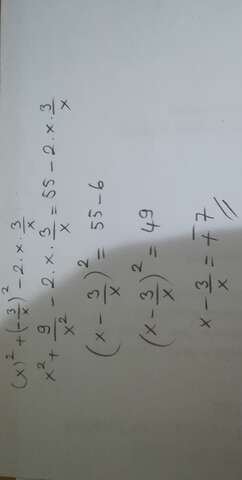 (x)² + (-3/x)² - 2.x.3/x
x² + 9/x² - 2.x.3/x = 55 - 2.x.3/x
(x - 3/x)² = 55 - 6
(x - 3/x)² = 49
x - 3/x = ∓7